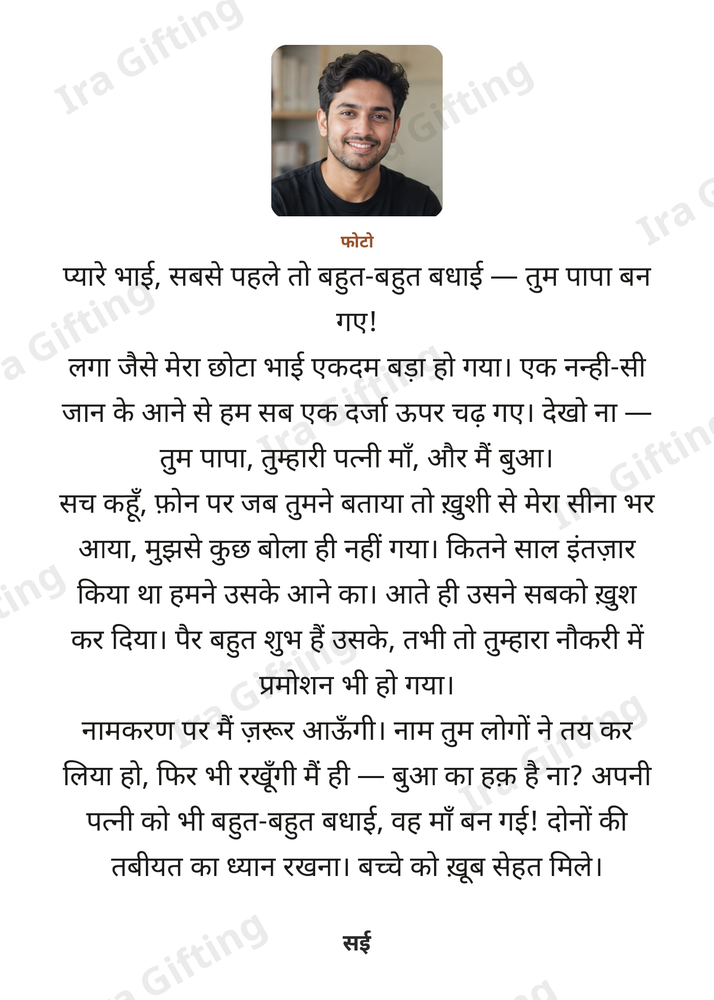 फोटो
प्यारे भाई, सबसे पहले तो बहुत-बहुत बधाई — तुम पापा बन
गए!
लगा जैसे मेरा छोटा भाई एकदम बड़ा हो गया। एक नन्ही-सी
जान के आने से हम सब एक दर्जा ऊपर चढ़ गए। देखो ना —
तुम पापा, तुम्हारी पत्नी माँ, और मैं बुआ।
सच कहूँ, फ़ोन पर जब तुमने बताया तो ख़ुशी से मेरा सीना भर
आया, मुझसे कुछ बोला ही नहीं गया। कितने साल इंतज़ार
किया था हमने उसके आने का। आते ही उसने सबको ख़ुश
कर दिया। पैर बहुत शुभ हैं उसके, तभी तो तुम्हारा नौकरी में
प्रमोशन भी हो गया।
नामकरण पर मैं ज़रूर आऊँगी। नाम तुम लोगों ने तय कर
लिया हो, फिर भी रखूँगी मैं ही — बुआ का हक़ है ना? अपनी
पत्नी को भी बहुत-बहुत बधाई, वह माँ बन गई! दोनों की
तबीयत का ध्यान रखना। बच्चे को ख़ूब सेहत मिले।
सई
Ira Gifting
Ira Gifting
Ira Gifting
Ira Gifting
Ira Gifting
Ira Gifting
Ira Gifting
Ira Gifting
Ira Gifting